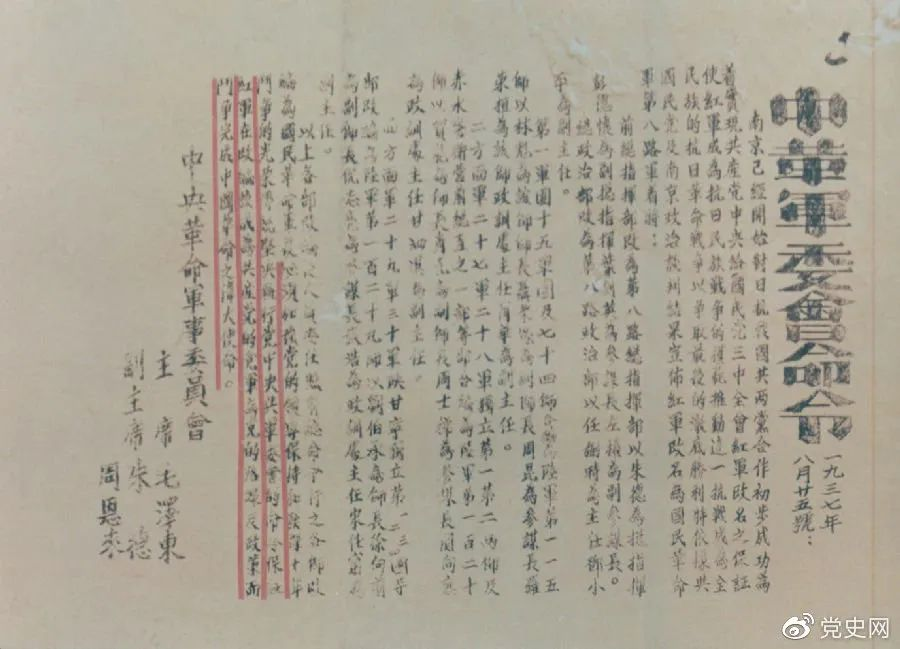 中華軍委會命令
一九三七年
八月廿五號：
南京已經開始對日抗戰國共兩黨合作初步成功為
着實現共産党中央給國民党三中全會紅軍改名之保証
使紅軍成為抗日民族戰爭的模範推動這一抗戰成為全
民族的抗日革命戰爭以爭取最後的澈底勝利特依據共
國民党及南京政治談判結果宣佈紅軍改名為國民革命
軍第八路軍着將：
前總指揮部改為第八路總指揮部以朱德為總指揮
彭德懷為副總指揮葉劍英為參謀長左權為副參謀長。
總政治部改為第八路政治部以任弼時為主任鄧小
平為副主任。
第一軍團十五軍團及七十四師合編為陸軍第一一五
師以林彪為該師師長聶榮臻為副師長周昆為參謀長羅
榮桓為該師政訓處主任蕭華為副主任。
二方面軍二十七軍二十八軍獨立第一第二兩師及
赤水警衛營前總直之一部等部合編為陸軍第一百二十
師以賀龍為師長蕭克為副師長周士
為參謀長關向應
為政訓處主任甘泗淇為副主任。
四方面軍二十九軍三十軍陝甘寧獨立第一二三四
等
部改編為陸軍第一百二十九師以劉伯承為師長徐向前
為副師長倪志亮為參謀長張浩為政訓處主任宋任窮為
副主任。
以上各部改編
人員委任
命令行之各部改
編為國民革命軍後必須加強党的領導保持和發揮十年
鬥爭的光榮傳統堅決執行党中央與軍委會的命令保証
紅軍在改編後成為共産党的党軍為党的路線及政策而
鬥爭完成中國革命之偉大使命。
中央革命軍事委員會
主 席 毛澤東
副主席 朱 德
周恩来
党史网